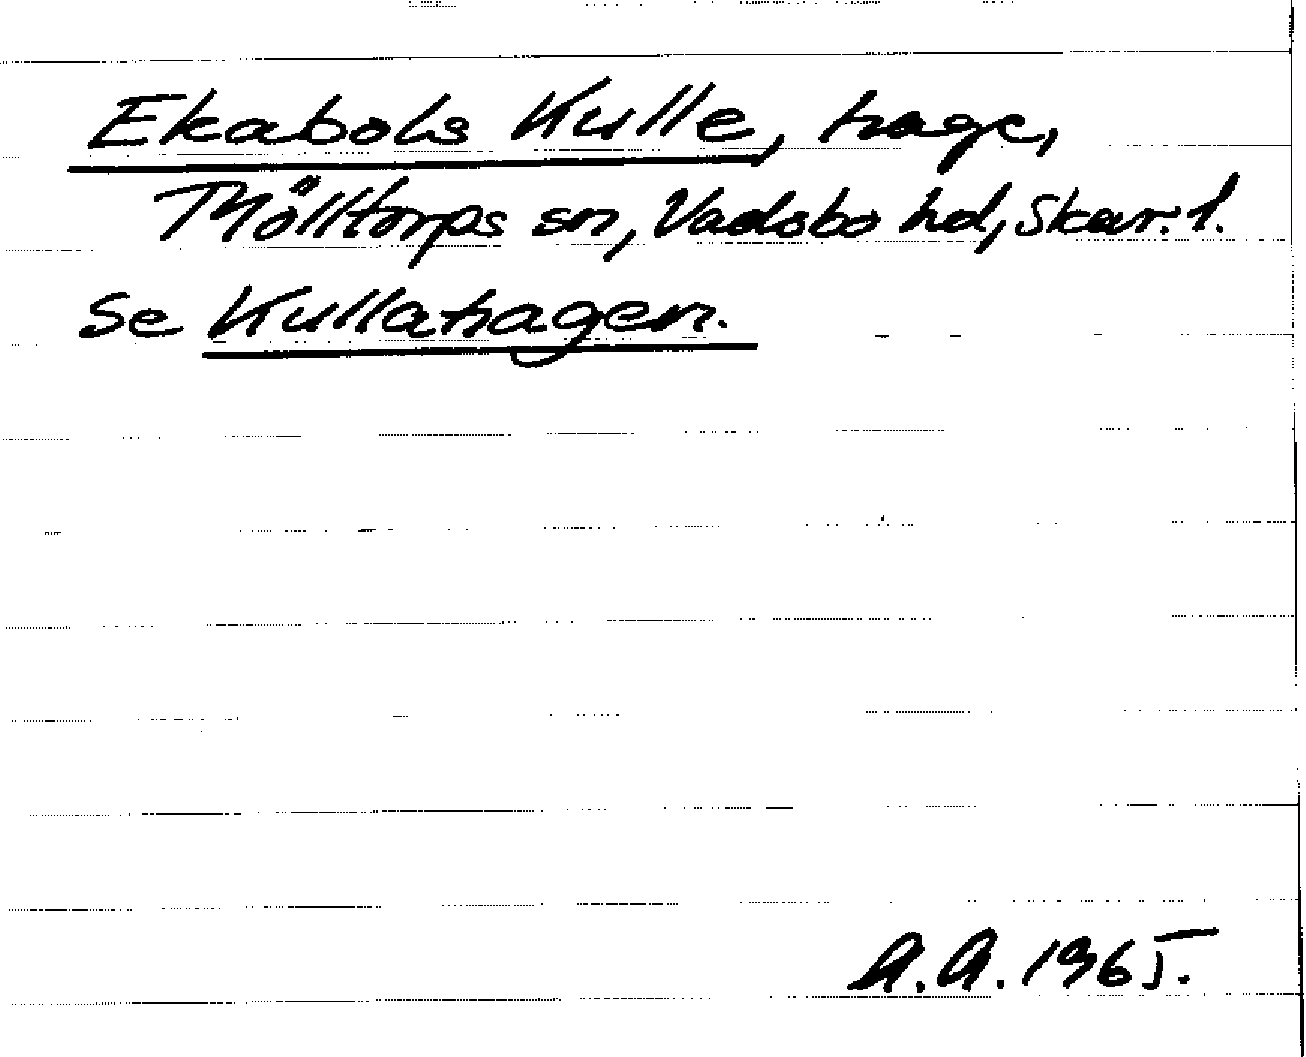 Ekabols Kulle, hage,
Mölltorps sn, Vadsbo hd, Skar. l.
Se Kullahagen.
A.A. 1965.